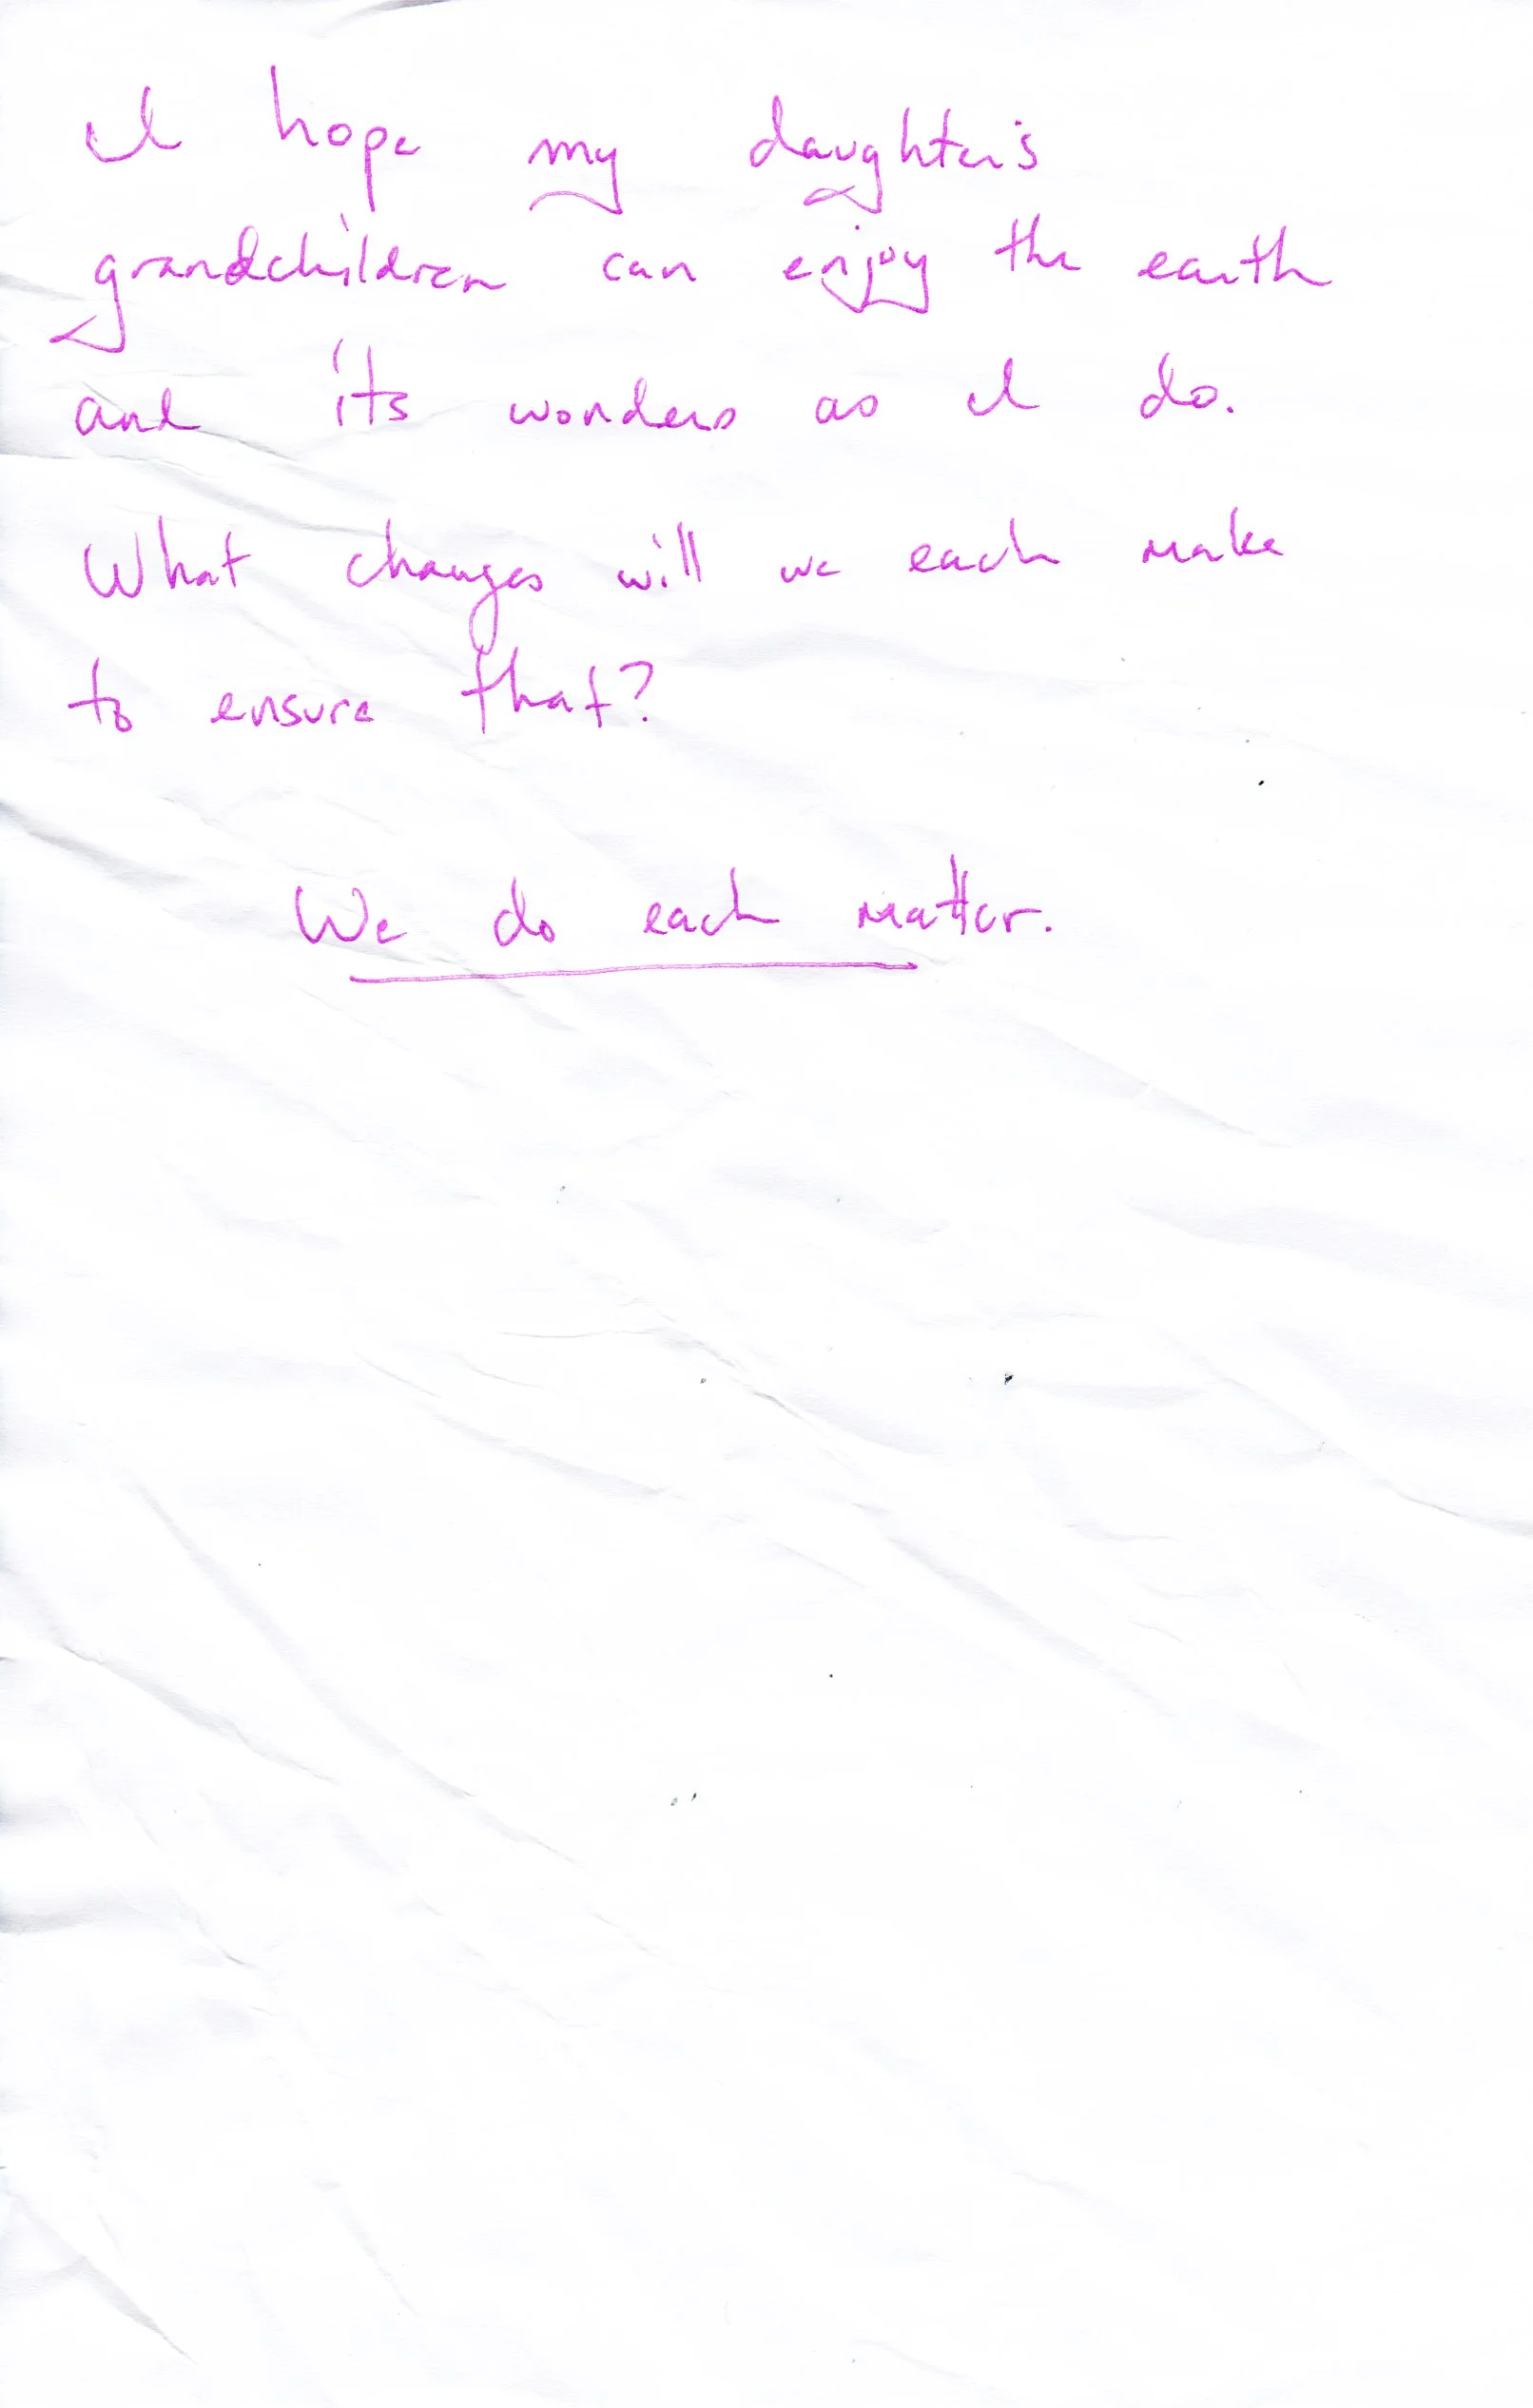 I hope my daughter's
grandchildren can enjoy the earth
and its wonders as I do.
What changes will we each make
to ensure that?
We do each matter.